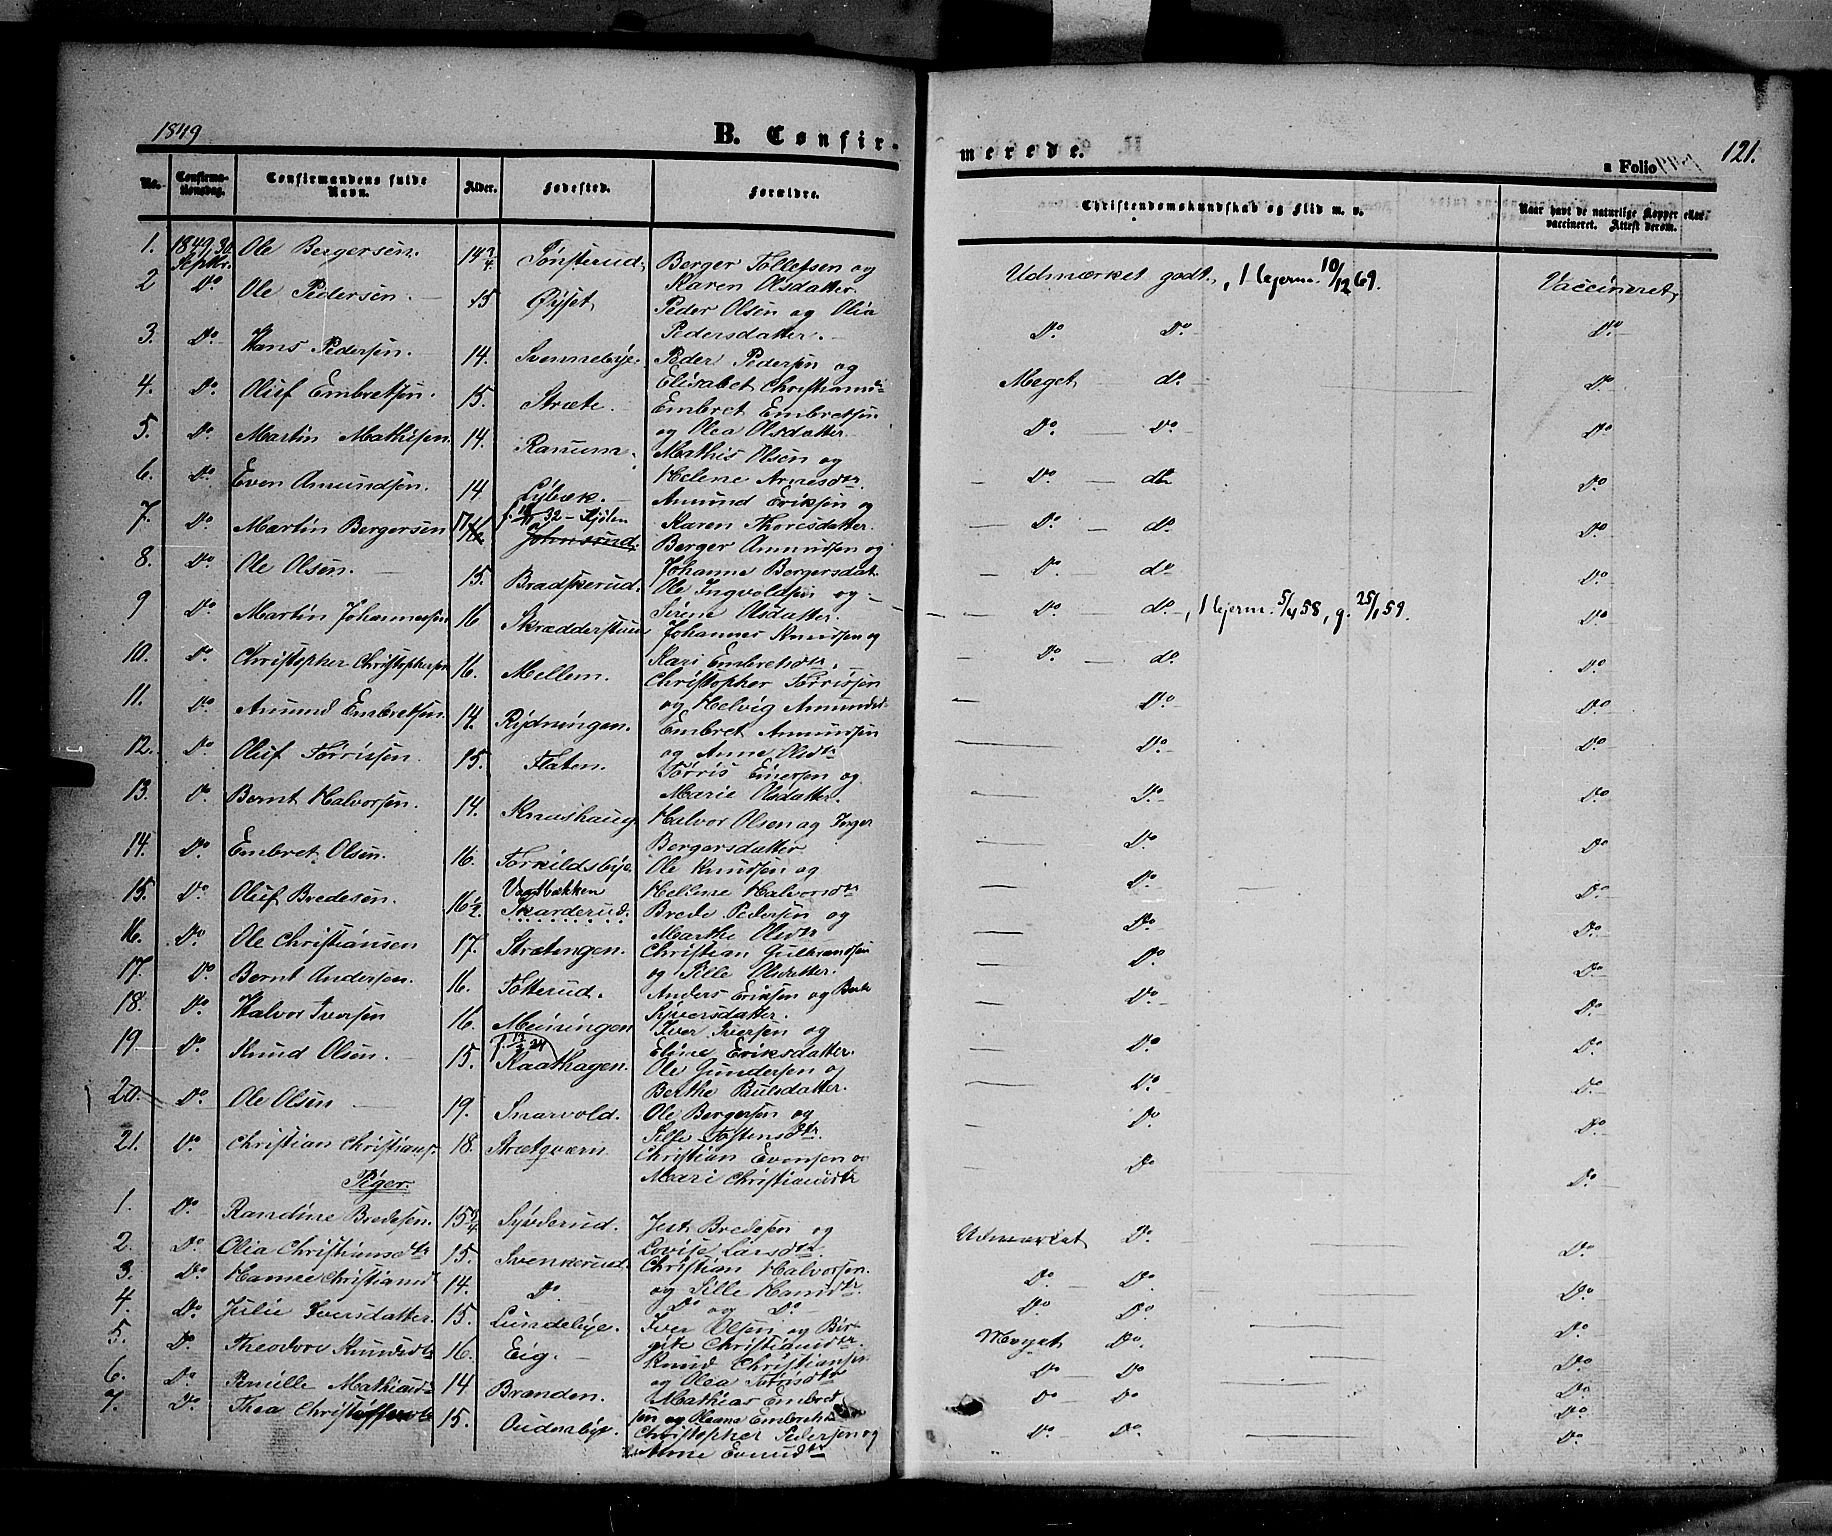 1849
B. Confir-
merede.
a Folio
121.
No. Confirmationsdag. Confirmandens fulde Navn. Alder. Fødested. Forældre. Christendomskundskab og Flid m. v. Naar havt de naturlige Kopper eller vaccineret. Attest derom.
1. 1849 30 Septbr. Ole Bergersen. 14 3/4 Tønsterud. Berger Tollefsen og Karen Olsdatter Udmærket godt, 1 lejerm. 10/12 69. Vaccineret
2 Do Ole Pedersen. 15 Øyset Peder Olsen og Olia Pedersdatter. Do. Do. Do
3. Do. Hans Pedersen. 14. Svennebye. Peder Pedersen og Elisabet Christiansd. Meget do. Do.
4. Do. Oluf Embretsen. 15. Stræte. Embret Embretsen og Olea Olsdatter Do. Do. Do
5. Do. Martin Mathisen. 14. Ranum. Mathis Olsen og Helene Arnesdtr. Do do Do
6. Do. Even Amundsen. 14 Lybæk. Amund Eriksen og Karen Thorisdatter. Do. do. Do
7. Do. Martin Bergersen 17 Kjølen Johnsrud. Berger Amundsen og Johanne Bergersdat. Do. do Do
8. Do. Ole Olsen. 15. Bradskerud. Ole Ingvoldsen og Sirene Olsdatter Do. do., 1 lejerm. 5/4 58, g. 25/1 59. Do
9 Do Martin Johannessen 16 Skrædderstuen Johannes Knudsen og Kari Embretsdtr. Do. do. Do.
10. Do. Christopher Christophersen 16. Mellem. Christopher Tørrissen og Helvig Amundsd. Do. Do.
11. Do. Amund Embretsen. 14. Rydningen. Embret Amundsen og Anne Olsdtr Do. Do.
12. Do Oluf Tørrissen. 15. Flaten. Tørris Einersen og Marie Olsdatter. Do. Do.
13. Do. Bernt Halvorsen. 14. Knushaug Halvor Olsen og Inger Bergersdatter Do. Do.
14. Do. Embret Olsen. 16. Torkildsbye. Ole Knudsen og Hellene Halvorsdtr Do. Do.
15. Do. Oluf Bredesen. 16 1/2 Vestbækken Skarderud. Brede Pedersen og Marthe Olsdtr Do. Do.
16. Do. Ole Christiansen 17. Strætengen. Christian Gulbrandsen og Sille Olsdatter. Do. Do.
17. Do Bernt Andersen. 16. Totterud. Anders Eriksen og Berte Syversdatter. Do. Do.
18. Do. Halvor Iversen 16. Meiningen Iver Iversen og Eline Eriksdatter. Do. Do.
19 Do. Knud Olsen. 15. Kaathagen. Ole Gundersen og Berthe Paulsdatter. Do. Do.
20. Do. Ole Olsen 19. Snarvold. Ole Bergersen og Sille Tostensdtr. Do. Do.
21. Do. Christian Christians. 18. Strætqværn Christian Evensen og Mari Christiansdtr Do Do.
Piger.
1. Do. Randine Bredesen. 15 3/4 Syverud. Jest Bredesen og Lovise Larsdtr. Udmærket Do. Do.
2. Do. Olia Christiansdtr 15. Svenkerud. Christian Halvorsen og Sille Hansdtr. Do. Do. Do.
3. Do. Hanne Christiansd 14. Do. Do og Do. Do Do. Do.
4. Do Julie Iversdatter. 15. Lundebye. Iver Olsen og Birgite Christiansdtr. Meget Do. Do.
5. Do. Theodore Knudsd. 16. Eig. Knud Christiansen og Olea Torrisdtr Do Do Do
6. Do. Pernille Mathiasd. 14 Branden. Mathias Embretsen og Hanne Embretsd. Do Do Do
7. Do. Thea Christoffersd. 15. Oudensbye. Christopher Pedersen og Anne Evensdtr Do Do Do.